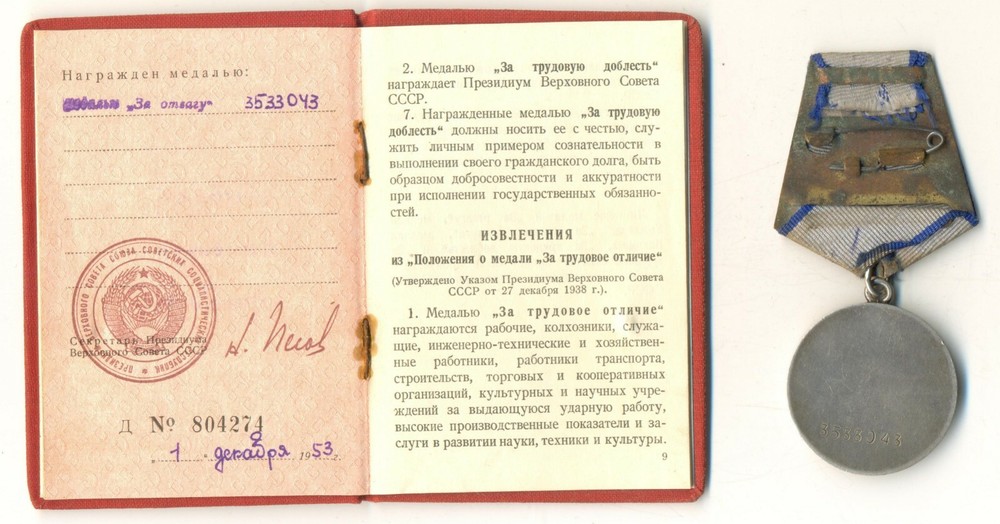 Награжден медалью:
„За отвагу“ 3533043
ПРЕЗИДИУМ ВЕРХОВНОГО СОВЕТА СОЮЗА СОВЕТСКИХ СОЦИАЛИСТИЧЕСКИХ РЕСПУБЛИК
Секретарь Президиума
Верховного Совета СССР
Н. Пегов
Д № 804274
1 декабря 1953 г.
2. Медалью „За трудовую доблесть“
награждает Президиум Верховного Совета
СССР.
7. Награжденные медалью „За трудовую
доблесть“ должны носить ее с честью, слу-
жить личным примером сознательности в
выполнении своего гражданского долга, быть
образцом добросовестности и аккуратности
при исполнении государственных обязанно-
стей.
ИЗВЛЕЧЕНИЯ
из „Положения о медали „За трудовое отличие“
(Утверждено Указом Президиума Верховного Совета
СССР от 27 декабря 1938 г.).
1. Медалью „За трудовое отличие“
награждаются рабочие, колхозники, служа-
щие, инженерно-технические и хозяйствен-
ные работники, работники транспорта,
строительств, торговых и кооперативных
организаций, культурных и научных учре-
ждений за выдающуюся ударную работу,
высокие производственные показатели и за-
слуги в развитии науки, техники и культуры.
9
3533043